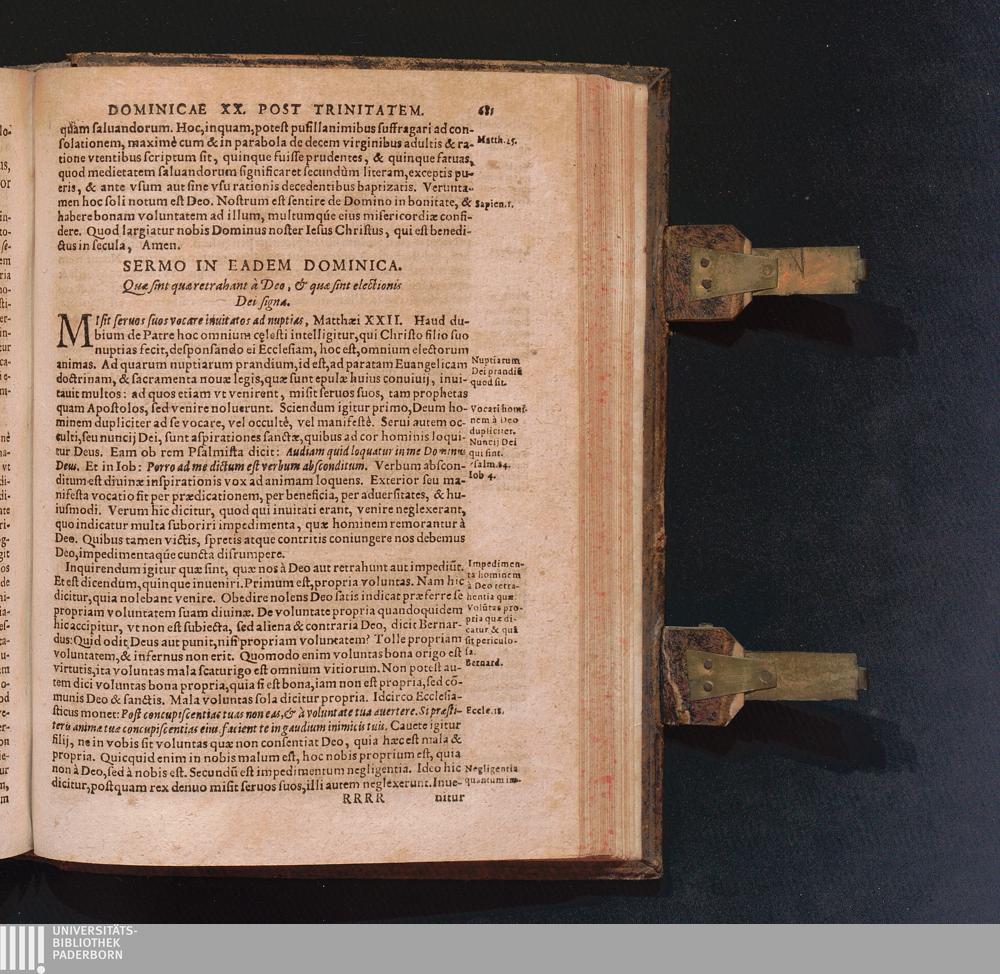 DOMINICAE XX. POST TRINITATEM. 681
quàm saluandorum. Hoc, inquam, potest pusillanimibus suffragari ad con-
solationem, maximè cum & in parabola de decem virginibus adultis & ra-
tione vtentibus scriptum sit, quinque fuisse prudentes, & quinque fatuas,
quod medietatem saluandorum significaret secundùm literam, exceptis pu-
eris, & ante vsum aut sine vsu rationis decedentibus baptizatis. Verunta-
men hoc soli notum est Deo. Nostrum est sentire de Domino in bonitate, &
habere bonam voluntatem ad illum, multumq́ue eius misericordiæ confi-
dere. Quod largiatur nobis Dominus noster Iesus Christus, qui est benedi-
ctus in secula, Amen.
Matth. 25.
Sapien. 1.
SERMO IN EADEM DOMINICA.
Quæ sint quæ retrahant à Deo, & quæ sint electionis
Dei signa.
MIsit seruos suos vocare inuitatos ad nuptias, Matthæi XXII. Haud du-
bium de Patre hoc omnium cęlesti intelligitur, qui Christo filio suo
nuptias fecit, desponsando ei Ecclesiam, hoc est, omnium electorum
animas. Ad quarum nuptiarum prandium, id est, ad paratam Euangelicam
doctrinam, & sacramenta nouæ legis, quæ sunt epulæ huius conuiuij, inui-
tauit multos: ad quos etiam vt venirent, misit seruos suos, tam prophetas
quam Apostolos, sed venire noluerunt. Sciendum igitur primo, Deum ho-
minem dupliciter ad se vocare, vel occultè, vel manifestè. Serui autem oc-
culti, seu nuncij Dei, sunt aspirationes sanctæ, quibus ad cor hominis loqui-
tur Deus. Eam ob rem Psalmista dicit: Audiam quid loquatur in me Dominus
Deus. Et in Iob: Porro ad me dictum est verbum absconditum. Verbum abscon-
ditum est diuinæ inspirationis vox ad animam loquens. Exterior seu ma-
nifesta vocatio fit per prædicationem, per beneficia, per aduersitates, & hu-
iusmodi. Verum hic dicitur, quod qui inuitati erant, venire neglexerant,
quo indicatur multa suboriri impedimenta, quæ hominem remorantur à
Deo. Quibus tamen victis, spretis atque contritis coniungere nos debemus
Deo, impedimentaq́ue cuncta disrumpere.
Nuptiarum
Dei prandiũ
quod sit.
Vocari homi-
nem à Deo
dupliciter.
Nuncij Dei
qui sint.
Psalm. 84.
Iob 4.
Inquirendum igitur quæ sint, quæ nos à Deo aut retrahunt aut impediũt.
Et est dicendum, quinque inueniri. Primum est, propria voluntas. Nam hic
dicitur, quia nolebant venire. Obedire nolens Deo satis indicat præferre se
propriam voluntatem suam diuinæ. De voluntate propria quandoquidem
hic accipitur, vt non est subiecta, sed aliena & contraria Deo, dicit Bernar-
dus: Quid odit Deus aut punit, nisi propriam voluntatem? Tolle propriam
voluntatem, & infernus non erit. Quomodo enim voluntas bona origo est
virtutis, ita voluntas mala scaturigo est omnium vitiorum. Non potest au-
tem dici voluntas bona propria, quia si est bona, iam non est propria, sed cõ-
munis Deo & sanctis. Mala voluntas sola dicitur propria. Idcirco Ecclesia-
sticus monet: Post concupiscentias tuas non eas, & à voluntate tua auertere. Si præsti-
teris animæ tuæ concupiscentias eius, facient te in gaudium inimicis tuis. Cauete igitur
filij, ne in vobis sit voluntas quæ non consentiat Deo, quia hæc est mala &
propria. Quicquid enim in nobis malum est, hoc nobis proprium est, quia
non à Deo, sed à nobis est. Secundũ est impedimentum negligentia. Ideo hic
dicitur, postquam rex denuo misit seruos suos, illi autem neglexerunt. Inue-
Impedimen-
ta hominem
à Deo retra-
hentia quæ.
Volũtas pro-
pria quæ di-
catur & quã
sit periculo-
sa.
Bernard.
Eccle. 18.
Negligentia
quantum im-
RRRR nitur
UNIVERSITÄTS-
BIBLIOTHEK
PADERBORN